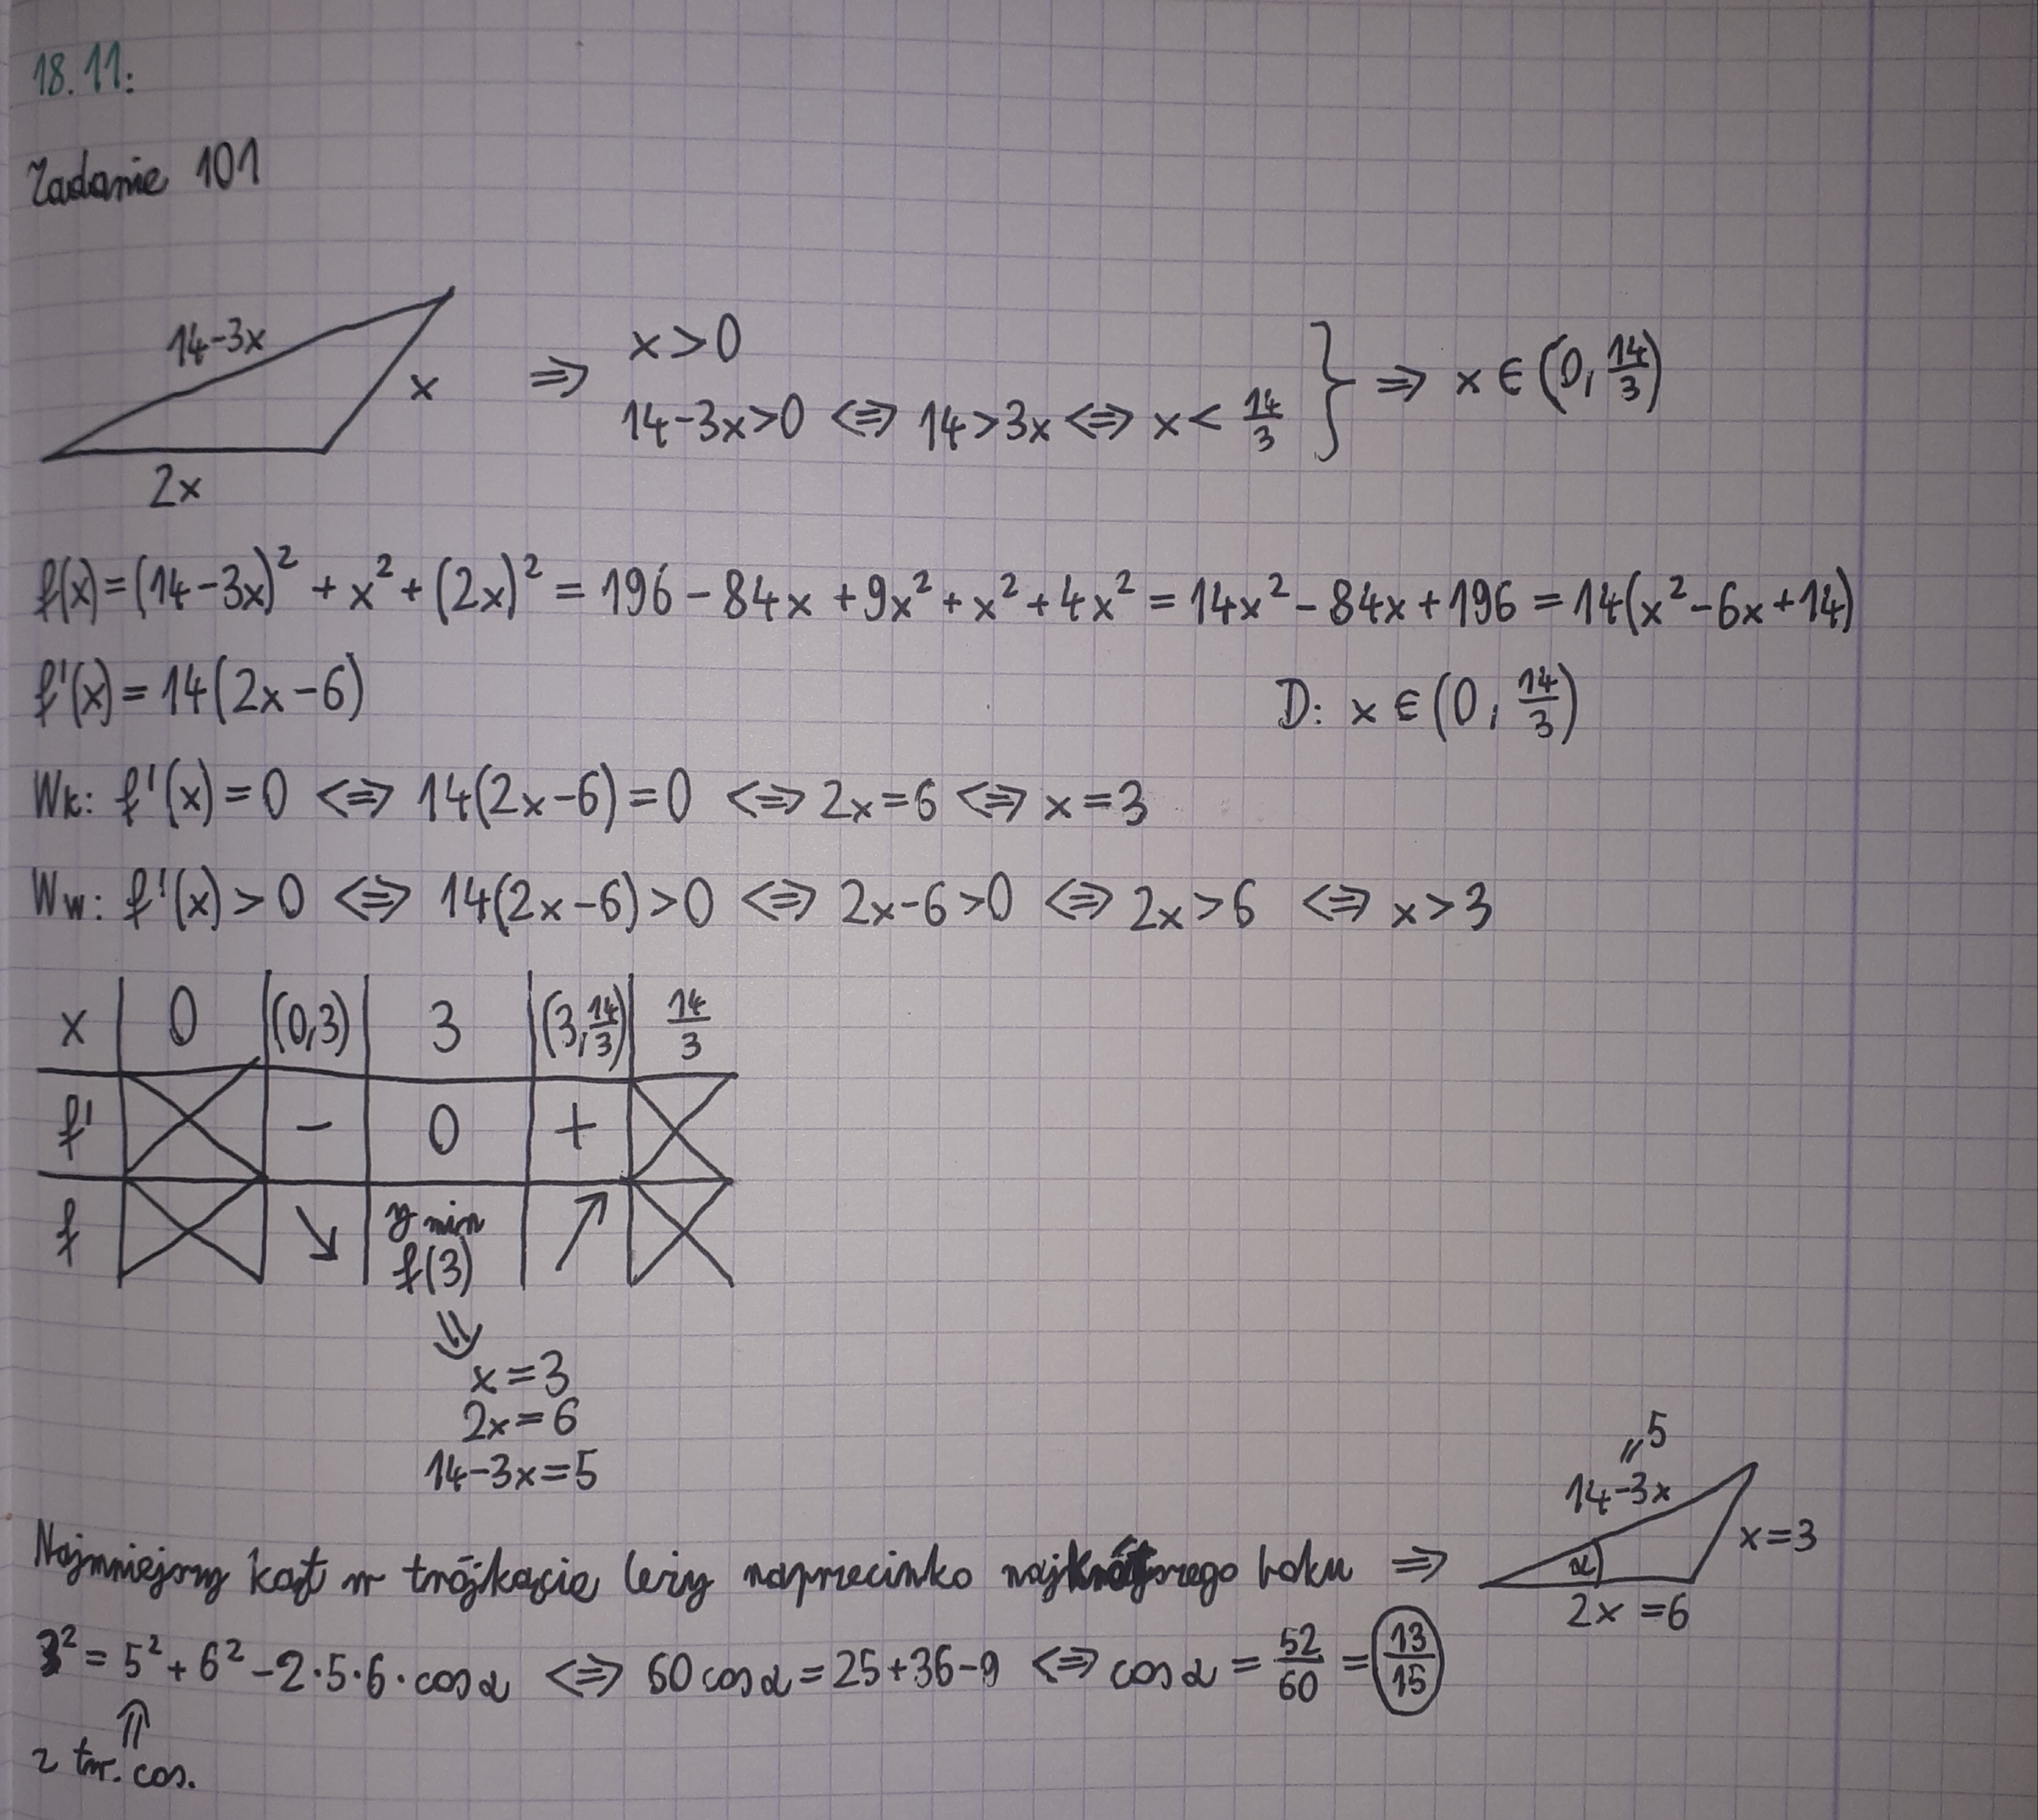 18.11:
Zadanie 101
14-3x
x
2x
⇒ x>0
14-3x>0 ⇔ 14>3x ⇔ x< 14/3 } ⇒ x ∈ (0, 14/3)
f(x)=(14-3x)² + x² + (2x)² = 196 - 84x + 9x² + x² + 4x² = 14x² - 84x + 196 = 14(x² - 6x + 14)
f'(x) = 14(2x-6) D: x ∈ (0, 14/3)
Wk: f'(x) = 0 ⇔ 14(2x-6) = 0 ⇔ 2x=6 ⇔ x=3
Ww: f'(x) > 0 ⇔ 14(2x-6) > 0 ⇔ 2x-6>0 ⇔ 2x>6 ⇔ x>3
x | 0 | (0,3) | 3 | (3, 14/3) | 14/3
f' | - | 0 | +
f | ↘ | y min f(3) | ↗
⇓
x=3
2x=6
14-3x=5
"5
14-3x
x=3
α
2x =6
Najmniejszy kąt w trójkącie leży naprzeciwko najkrótszego boku ⇒
3² = 5² + 6² - 2·5·6·cosα ⇔ 60cosα = 25+36-9 ⇔ cosα = 52/60 = 13/15
⇑
z tw. cos.